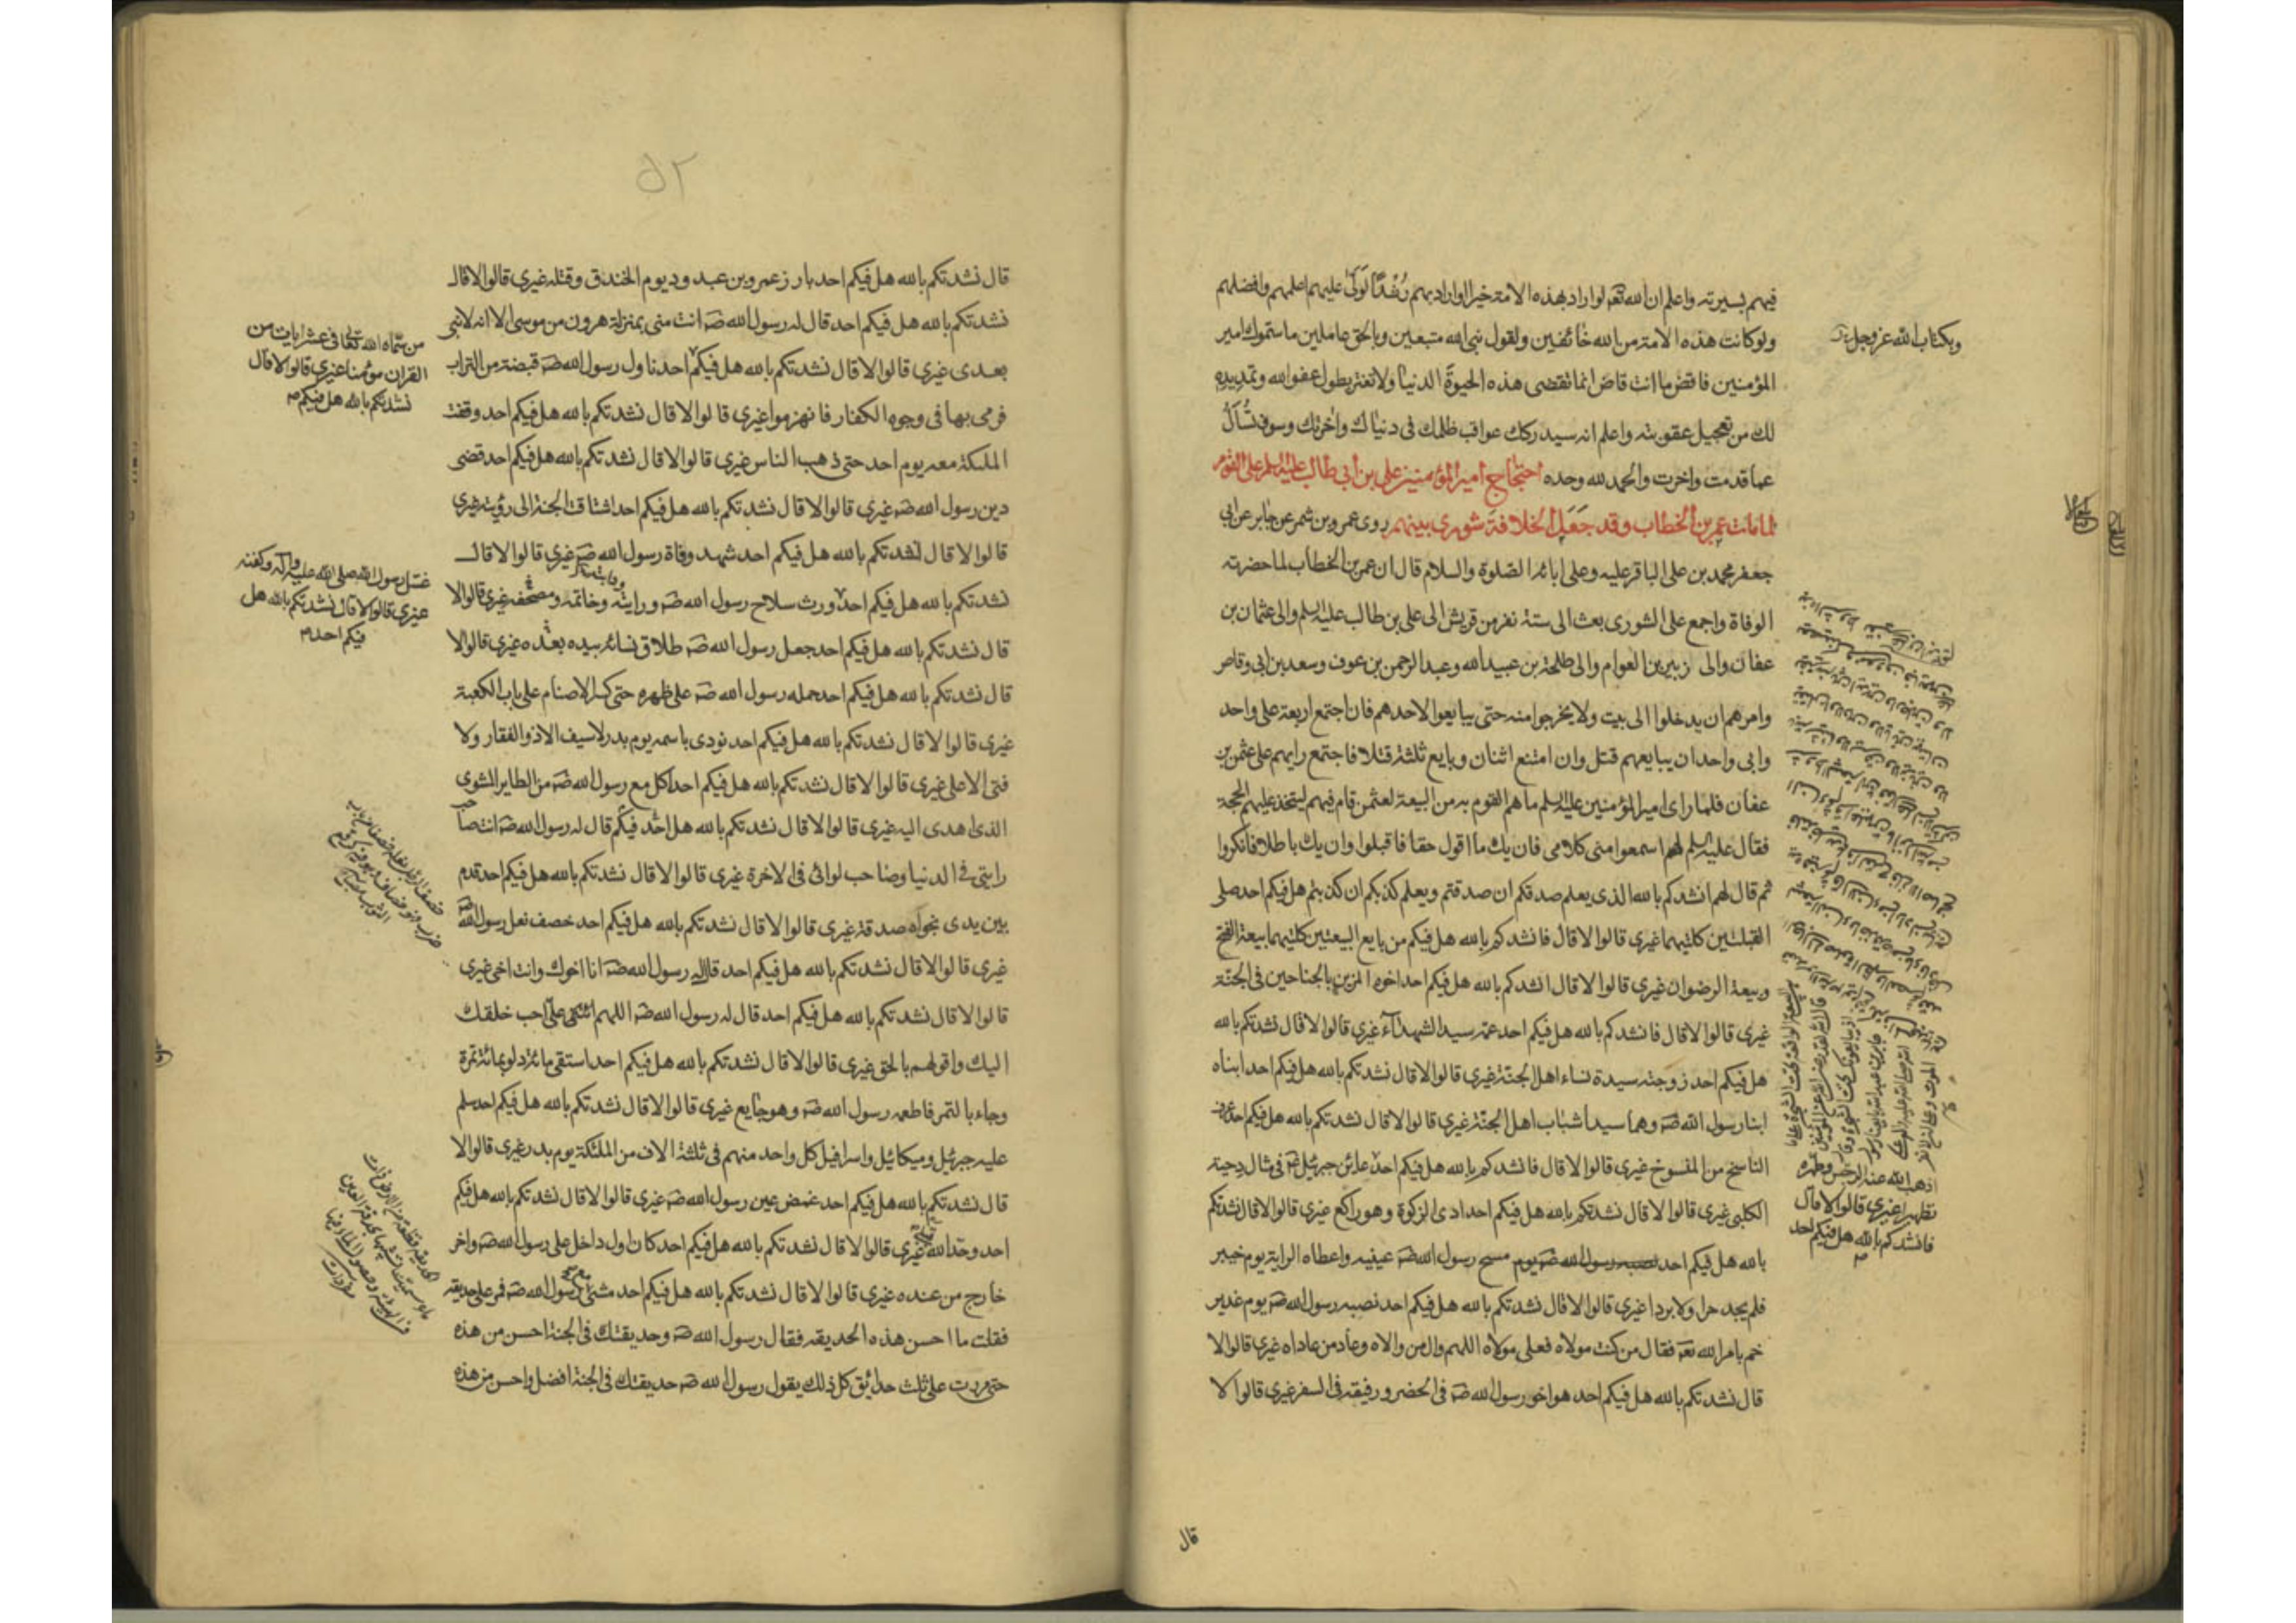 فيهم بسيرته واعلم ان الله تعه لو اراد بهذه الامة خيرا او اراد بهم رُشْدًا لَوَلّىٰ عليهم اعلمهم وافضلهم
ولو كانت هذه الامة من الله خائفين ولقول نبى الله متبعين وبالحق عاملين ما سموك امير
وبكتاب الله عز وجل
المؤمنين فاقض ما انت قاض انما تقضى هذه الحيوة الدنيا ولا تغتر بطول عفو الله وتمديده
لك من تعجيل عقوبته واعلم انه سيدركك عواقب ظلمك فى دنياك واخرتك وسوف تُسْأَلُ
عما قدمت واخرت والحمد لله وحده احتجاج امير المؤمنين على بن ابى طالب عليه السلم على القوم
لما مات عمر بن الخطاب وقد جَعَلَ الخلافة شورى بينهم روى عمرو بن شمر عن جابر عن ابى
جعفر محمد بن على الباقر عليه وعلى ابائه الصلوة والسلام قال ان عمر بن الخطاب لما حضرته
الوفاة واجمع على الشورى بعث الى ستة نفر من قريش الى على بن طالب عليه السلم والى عثمان بن
عفان والى زبير بن العوام والى طلحة بن عبيد الله وعبد الرحمن بن عوف وسعد بن ابى وقاص
وامرهم ان يدخلوا الى بيت ولا يخرجوا منه حتى يبايعوا لاحدهم فان اجتمع اربعة على واحد
وابى واحد ان يبايعهم قتل وان امتنع اثنان وبايع ثلثة قتلا فاجتمع رايهم على عثمن بن
عفان فلما راى امير المؤمنين عليه السلم ما هم القوم به من البيعة لعثمن قام فيهم ليتخذ عليهم الحجة
فقال عليه السلم لهم اسمعوا منى كلامى فان يك ما اقول حقا فاقبلوا وان يك باطلا فانكروا
ثم قال لهم انشدكم بالله الذى يعلم صدقكم ان صدقتم ويعلم كذبكم ان كذبتم هل فيكم احد صلى
القبلتين كلتيهما غيرى قالوا لا قال فانشدكم بالله هل فيكم من بايع البيعتين كلتيهما بيعة الفتح
وبيعة الرضوان غيرى قالوا لا قال انشدكم بالله هل فيكم احد اخوه المزين بالجناحين فى الجنة
غيرى قالوا لا قال فانشدكم بالله هل فيكم احد عمه سيد الشهداء غيرى قالوا لا قال نشدتكم بالله
هل فيكم احد زوجته سيدة نساء اهل الجنة غيرى قالوا لا قال نشدتكم بالله هل فيكم احد ابناه
ابنا رسول الله صه وهما سيدا شباب اهل الجنة غيرى قالوا لا قال نشدتكم بالله هل فيكم احد عرف
الناسخ من المنسوخ غيرى قالوا لا قال فانشدكم بالله هل فيكم احد عاين جبرئيل فى مثال دحية
اذهب الله عنه الرجس وطهره
تطهيرا غيرى قالوا لا قال
فانشدكم بالله هل فيكم احد
الكلبى غيرى قالوا لا قال نشدتكم بالله هل فيكم احد ادى الزكوة وهو راكع غيرى قالوا لا قال نشدتكم
بالله هل فيكم احد نصبه رسول الله صه يوم مسح رسول الله صه عينيه واعطاه الراية يوم خيبر
فلم يجد حرا ولا بردا غيرى قالوا لا قال نشدتكم بالله هل فيكم احد نصبه رسول الله صه يوم غدير
خم بامر الله تعه فقال من كنت مولاه فعلى مولاه اللهم وال من والاه وعاد من عاداه غيرى قالوا لا
قال نشدتكم بالله هل فيكم احد هو اخو رسول الله صه فى الحضر ورفيقه فى السفر غيرى قالوا لا
قال
٥٢
قال نشدتكم بالله هل فيكم احد بارز عمرو بن عبد ود يوم الخندق وقتله غيرى قالوا لا قال
نشدتكم بالله هل فيكم احد قال له رسول الله صه انت منى بمنزلة هرون من موسى الا انه لا نبى
بعدى غيرى قالوا لا قال نشدتكم بالله هل فيكم احد ناول رسول الله صه قبضة من التراب
من سماه الله تعالى فى عشر ايات من
القران مؤمنا غيرى قالوا لا قال
نشدتكم بالله هل فيكم
فرمى بها فى وجوه الكفار فانهزموا غيرى قالوا لا قال نشدتكم بالله هل فيكم احد وقفت
الملئكة معه يوم احد حتى ذهب الناس غيرى قالوا لا قال نشدتكم بالله هل فيكم احد قضى
دين رسول الله صه غيرى قالوا لا قال نشدتكم بالله هل فيكم احد اشتاقت الجنة الى رؤيته غيرى
قالوا لا قال نشدتكم بالله هل فيكم احد شهد وفاة رسول الله صه غيرى قالوا لا قال
غسل رسول الله صلى الله عليه واله وكفنه
غيرى قالوا لا قال نشدتكم بالله هل
فيكم احد
نشدتكم بالله هل فيكم احد ورث سلاح رسول الله صه ورايته وخاتمه ومصحفه غيرى قالوا لا
قال نشدتكم بالله هل فيكم احد جعل رسول الله صه طلاق نسائه بيده بعده غيرى قالوا لا
قال نشدتكم بالله هل فيكم احد حمله رسول الله صه على ظهره حتى كسر الاصنام على باب الكعبة
غيرى قالوا لا قال نشدتكم بالله هل فيكم احد نودى باسمه يوم بدر لا سيف الا ذو الفقار ولا
فتى الا على غيرى قالوا لا قال نشدتكم بالله هل فيكم احد اكل مع رسول الله صه من الطاير المشوى
الذى اهدى اليه غيرى قالوا لا قال نشدتكم بالله هل احد فيكم قال له رسول الله صه انت صاحب
رايتى فى الدنيا وصاحب لوائى فى الاخرة غيرى قالوا لا قال نشدتكم بالله هل فيكم احد قدم
بين يدى نجواه صدقة غيرى قالوا لا قال نشدتكم بالله هل فيكم احد خصف نعل رسول الله صه
غيرى قالوا لا قال نشدتكم بالله هل فيكم احد قال له رسول الله صه انا اخوك وانت اخى غيرى
قالوا لا قال نشدتكم بالله هل فيكم احد قال له رسول الله صه اللهم ائتنى على احب خلقك
اليك واقولهم بالحق غيرى قالوا لا قال نشدتكم بالله هل فيكم احد استقى مائة دلو بمائة تمرة
وجاء بالتمر فاطعمه رسول الله صه وهو جايع غيرى قالوا لا قال نشدتكم بالله هل فيكم احد سلم
عليه جبرئيل وميكائيل واسرافيل كل واحد منهم فى ثلثة الاف من الملئكة يوم بدر غيرى قالوا لا
قال نشدتكم بالله هل فيكم احد غمض عين رسول الله صه غيرى قالوا لا قال نشدتكم بالله هل فيكم
احد وحد الله غيرى قالوا لا قال نشدتكم بالله هل فيكم احد كان اول داخل على رسول الله صه واخر
خارج من عنده غيرى قالوا لا قال نشدتكم بالله هل فيكم احد مشى مع رسول الله صه فمر على حديقة
فقلت ما احسن هذه الحديقه فقال رسول الله صه وحديقتك فى الجنة احسن من هذه
حتى مررت على ثلث حدائق كل ذلك يقول رسول الله صه حديقتك فى الجنة افضل واحسن من هذه